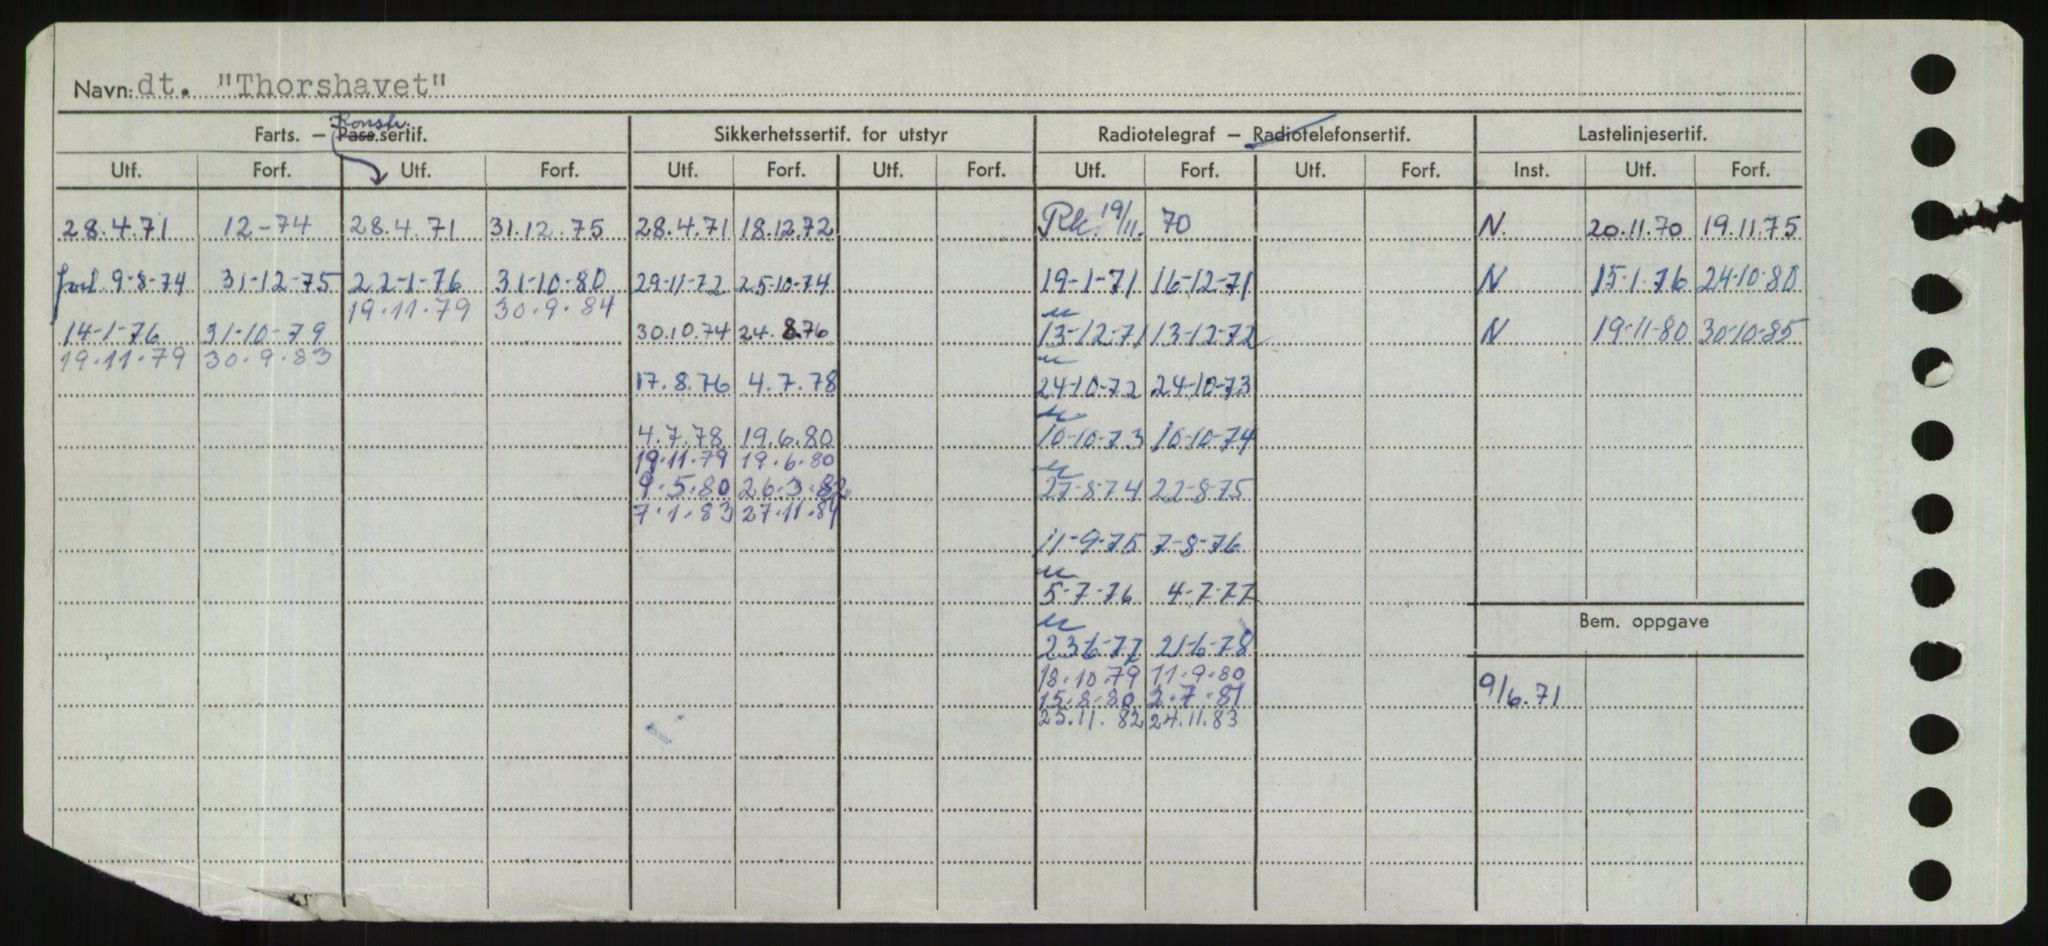 Navn: dt. "Thorshavet"
Konstr.
Farts. – Pass.sertif. Sikkerhetssertif. for utstyr Radiotelegraf – Radiotelefonsertif. Lastelinjesertif.
Utf. Forf. Utf. Forf. Utf. Forf. Utf. Forf. Utf. Forf. Utf. Forf. Inst. Utf. Forf.
28.4.71 12-74 28.4.71 31.12.75 28.4.71 18.12.72 Rk. 19/11. 70 N. 20.11.70 19.11.75
forl 9-8-74 31-12-75 22-1-76 31-10-80 29-11-72 25-10-74 19-1-71 16-12-71 N 15-1-76 24-10-80
19.11.79 30.9.84
14-1-76 31-10-79 30.10.74 24.8.76 13-12-71 13-12-72 N 19-11-80 30-10-85
19.11.79 30.9.83
17.8.76 4.7.78 24-10-72 24-10-73
4.7.78 19.6.80 10-10-73 10-10-74
19.11.79 19.6.80
9.5.80 26.3.82 27-8-74 22-8-75
7.1.83 27.11.84
11-9-75 7-8-76
5-7-76 4-7-77
Bem. oppgave
23-6-77 21-6-78
18.10.79 11.9.80
15.8.80 2.7.81 9/6.71
25.11.82 24.11.83